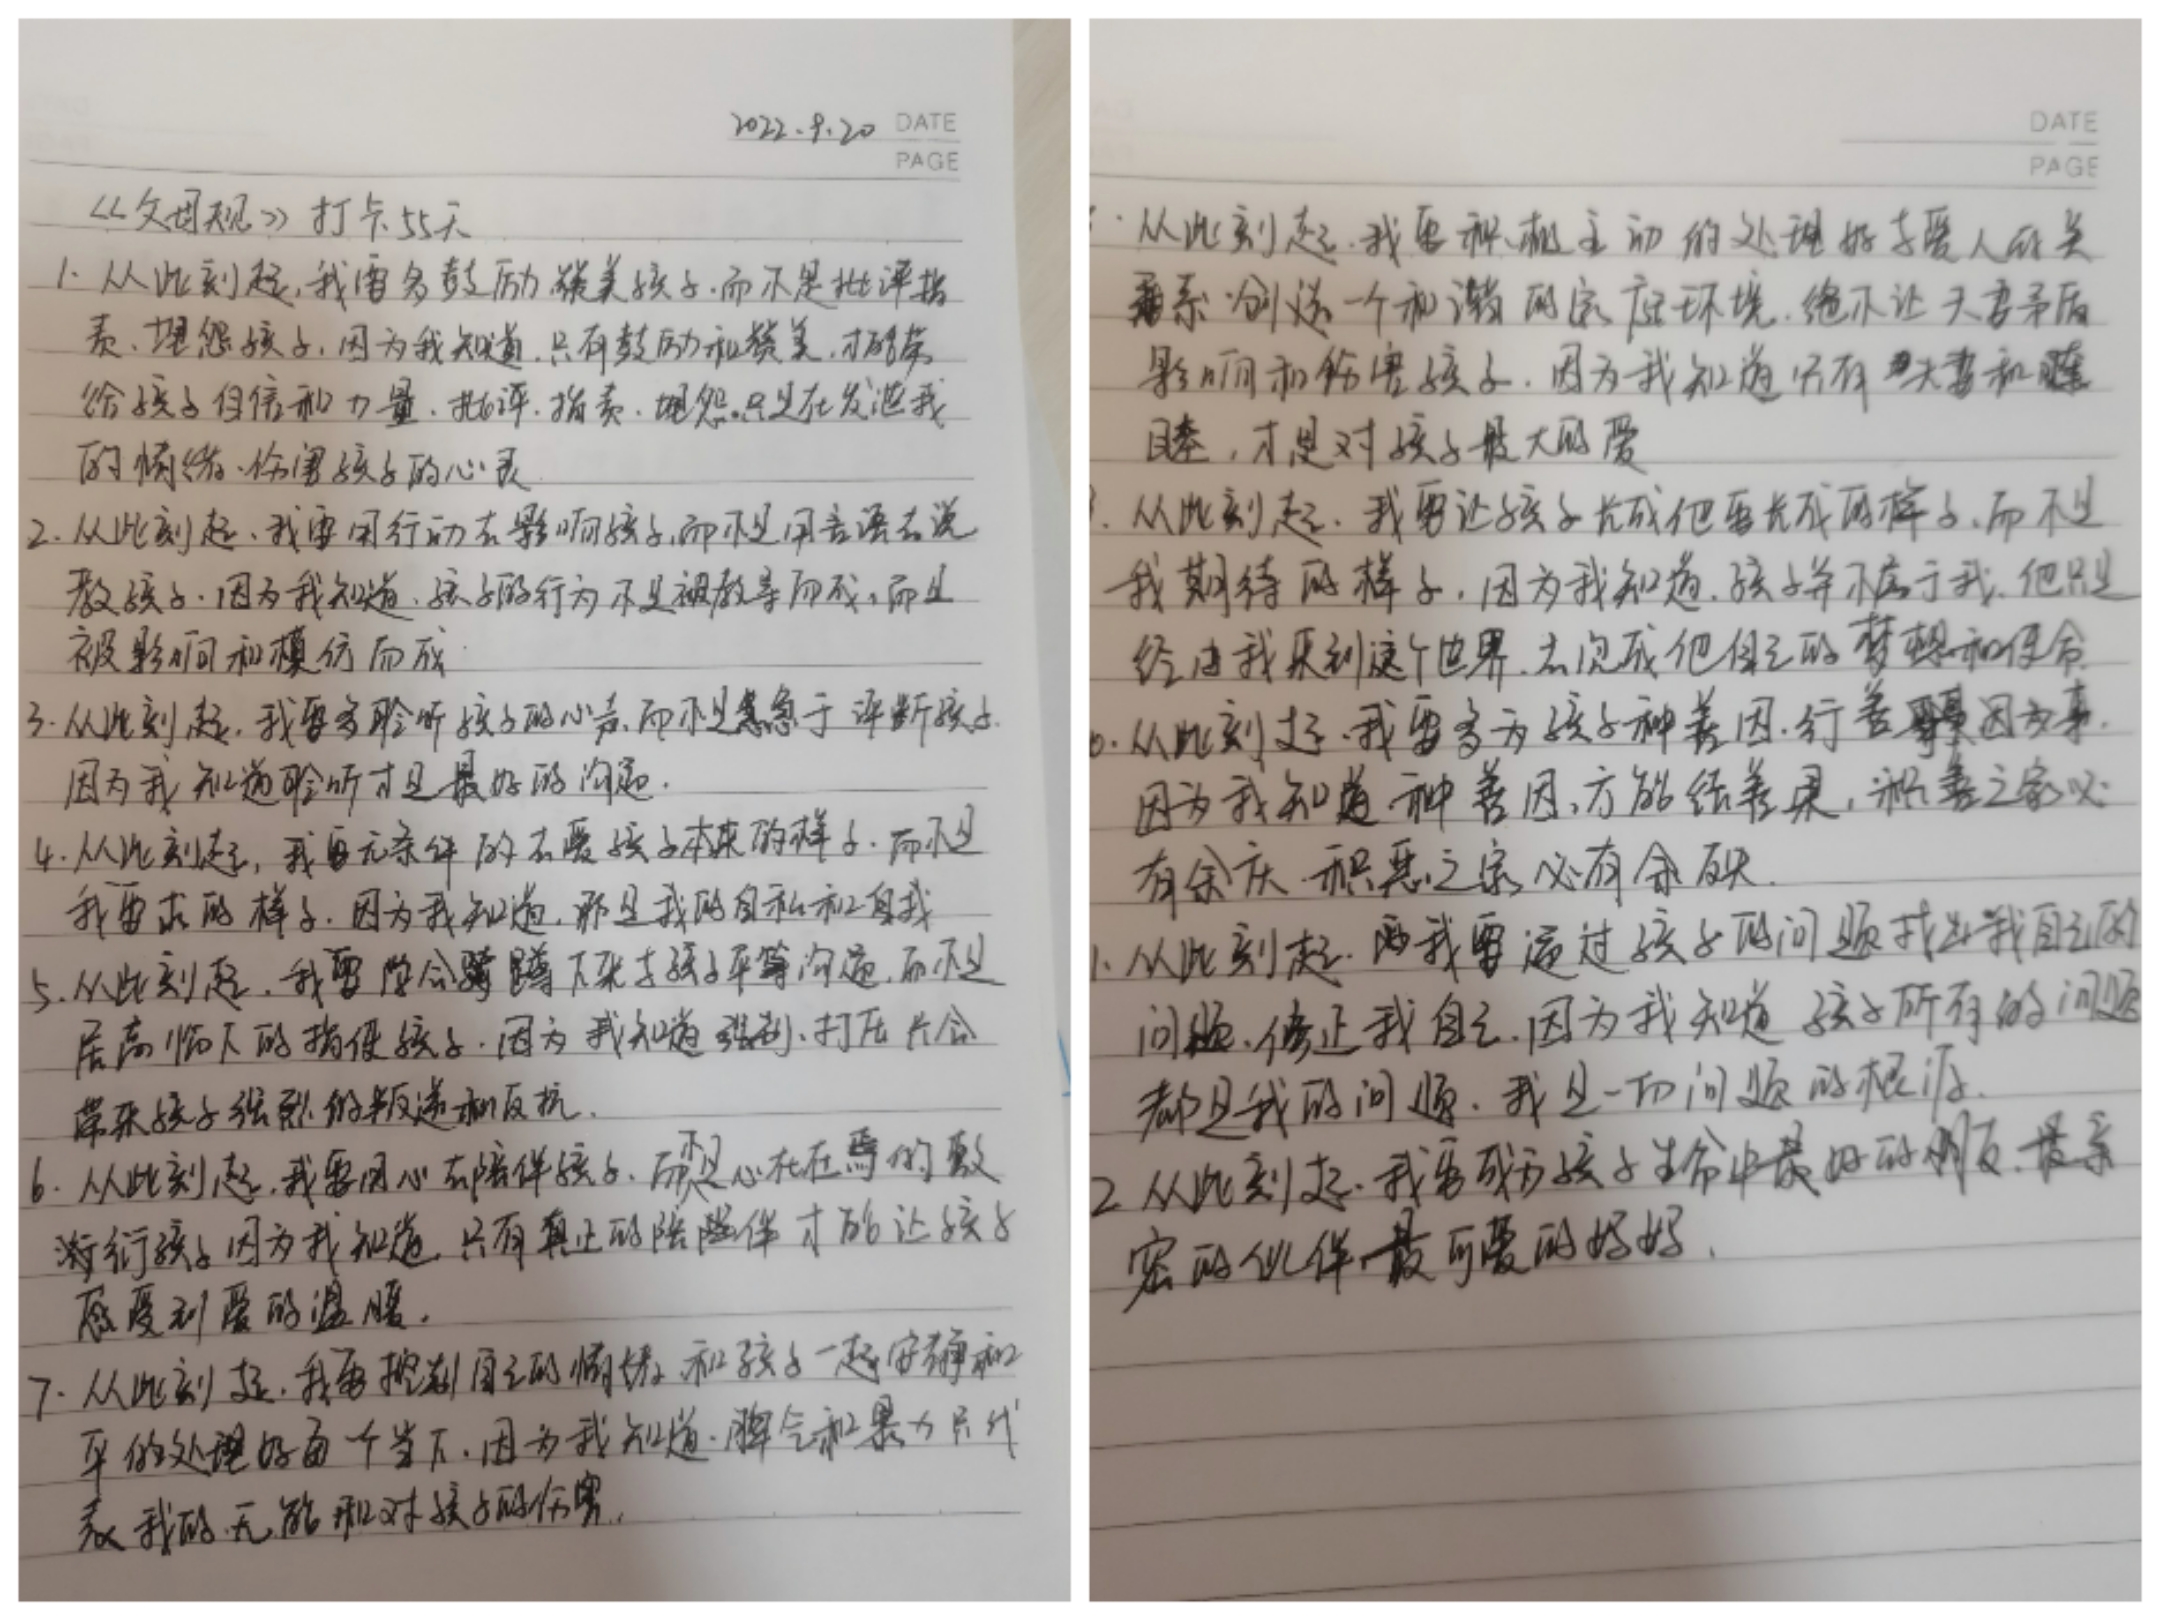 2022.9.20 DATE
PAGE
《父母规》打卡55天
1. 从此刻起,我要多鼓励赞美孩子.而不是批评指
责、埋怨孩子,因为我知道.只有鼓励和赞美.才能带
给孩子自信和力量.批评.指责.埋怨.只是在发泄我
的情绪.伤害孩子的心灵
2. 从此刻起、我要用行动去影响孩子,而不是用言语去说
教孩子.因为我知道.孩子的行为不是被教导而成,而是
被影响和模仿而成
3. 从此刻起.我要多聆听孩子的心声.而不是急于评断孩子.
因为我知道聆听才是最好的沟通.
4. 从此刻起,我要无条件的去爱孩子本来的样子.而不是
我要求的样子.因为我知道.那是我的自私和自我
5. 从此刻起.我要学会蹲下来与孩子平等沟通.而不是
居高临下的指使孩子.因为我知道强制、打压只会
带来孩子强烈的叛逆和反抗.
6. 从此刻起.我要用心去陪伴孩子.而不是心不在焉的敷
衍孩子因为我知道.只有真正的陪伴才能让孩子
感受到爱的温暖.
7. 从此刻起.我要控制自己的情绪,和孩子一起安静和
平的处理好每个当下.因为我知道.脾气和暴力只代
表我的无能和对孩子的伤害.
DATE
PAGE
从此刻起.我要积极主动的处理好与爱人的关
系创造一个和谐的家庭环境.绝不让夫妻矛盾
影响和伤害孩子.因为我知道只有夫妻和
睦,才是对孩子最大的爱
从此刻起.我要让孩子长成他要长成的样子.而不是
我期待的样子.因为我知道.孩子并不属于我.他只是
经由我来到这个世界.去完成他自己的梦想和使命
从此刻起.我要多为孩子种善因.行善事.
因为我知道种善因.方能结善果,积善之家必
有余庆.积恶之家必有余殃.
1. 从此刻起.我要通过孩子的问题找出我自己的
问题.修正我自己.因为我知道孩子所有的问题
都是我的问题.我是一切问题的根源.
2 从此刻起.我要成为孩子生命中最好的朋友.最亲
密的伙伴.最可爱的妈妈.